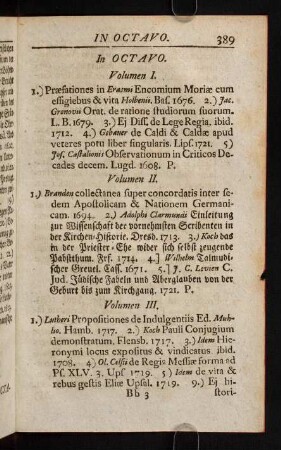 IN OCTAVO. 389
In OCTAVO.
Volumen I.
1.) Præfationes in Erasmi Encomium Moriæ cum
effigiebus & vita Holbenii. Bas. 1676. 2.) Jac.
Gronovii Orat. de ratione studiorum suorum.
L. B. 1679. 3.) Ej Diss. de Lege Regia, ibid.
1712. 4.) Gebauer de Caldi & Caldæ apud
veteres potu liber singularis. Lips. 1721. 5)
Jos. Castalionis Observationum in Criticos De-
cades decem. Lugd. 1608. P.
Volumen II.
1.) Branden collectanea super concordatis inter se-
dem Apostolicam & Nationem Germani-
cam. 1694. 2.) Adolphi Clarmundi Einleitung
zur Wissenschaft der vornehmsten Scribenten in
der Kirchen-Historie. Dresd. 1713. 3.) Koch das
in der Priester-Ehe wider sich selbst zeugende
Pabstthum. Frf. 1714. 4.) Wilhelm Talmudi-
scher Greuel. Cass. 1671. 5.) J. G. Levien C.
Jud. Jüdische Fabeln und Aberglauben von der
Geburt bis zum Kirchgang. 1721. P.
Volumen III.
1.) Lutheri Propositiones de Indulgentiis Ed. Muh-
lio. Hamb. 1717. 2.) Koch Pauli Conjugium
demonstratum. Flensb. 1717. 3.) Idem Hie-
ronymi locus expositus & vindicatus ibid.
1708. 4.) Ol. Celsii de Regia Messiæ forma ad
Ps. XLV. 3. Ups 1719. 5.) Idem de vita &
rebus gestis Eliæ Upsal. 1719. 9.) Ej hi-
Bb 3 stori-